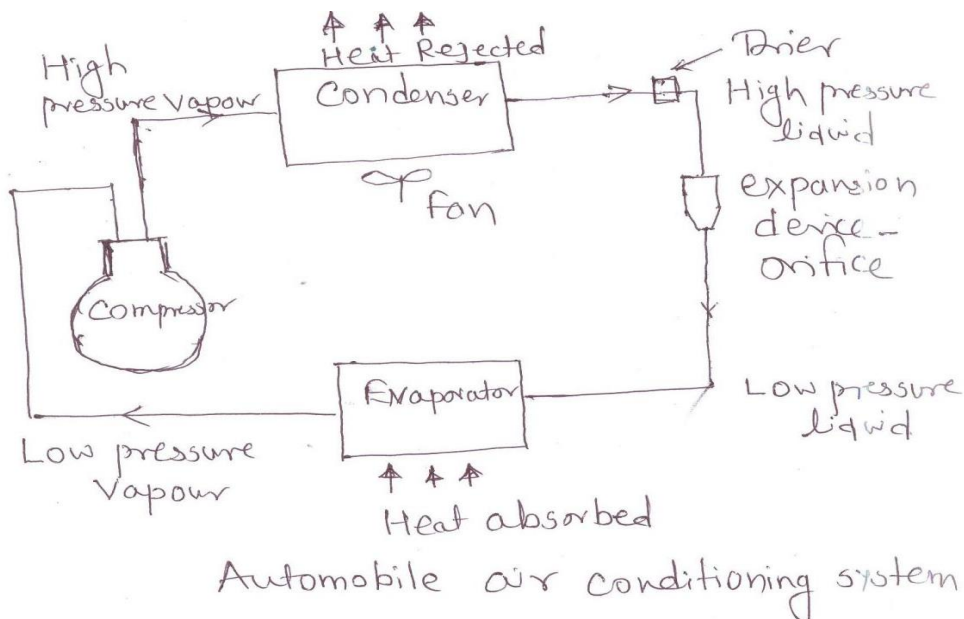 Heat Rejected
High
pressure Vapour
Condenser
Drier
High pressure
liquid
fan
expansion
device -
orifice
Compressor
Evaporator
Low pressure
liquid
Low pressure
Vapour
Heat absorbed
Automobile air conditioning system